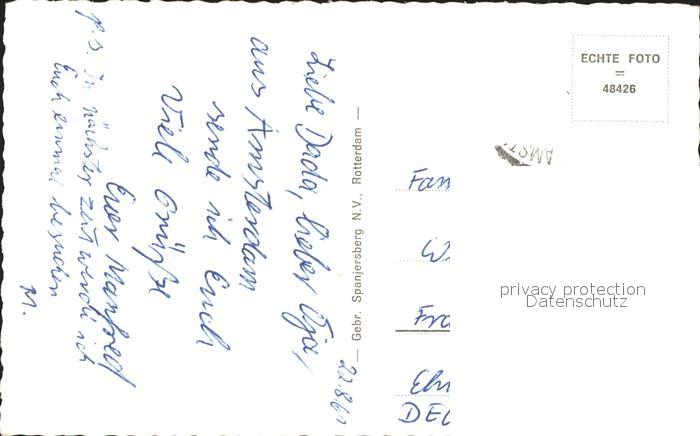 22.8.61
Liebe Dada, lieber Opa,
aus Amsterdam
sende ich Euch
Viele Grüße
Euer Manfred
P.S. In nächster Zeit werde ich
Euch einmal besuchen
M.
— Gebr. Spanjersberg N.V., Rotterdam —
ECHTE FOTO
=
48426
AMST
Fam
W
Fra
DEU
privacy protection
Datenschutz